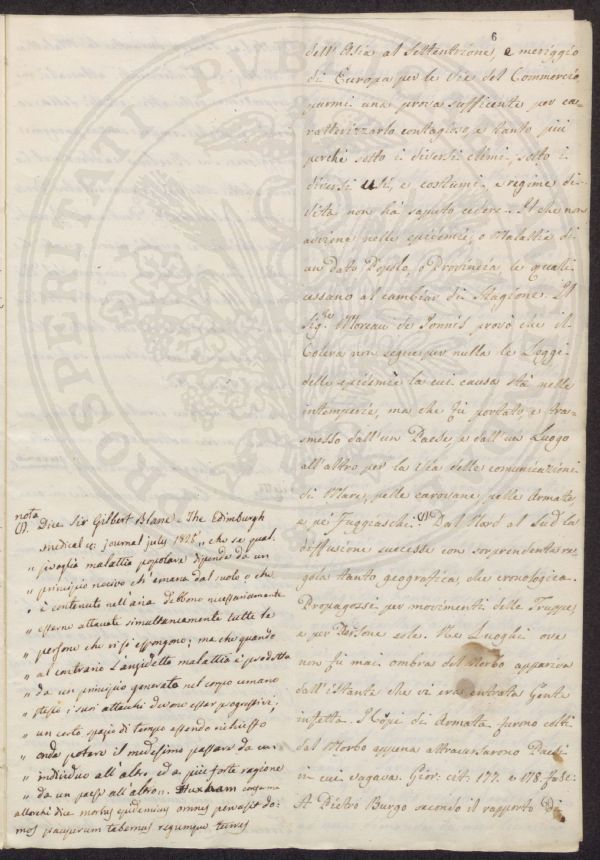 6
dell'Asia al Settentrione, e meriggio
di Europa per le vie del Commercio
parmi una prova sufficente per ca=
ratterizzarlo contagioso, e tanto più
perchè sotto i diversi climi, sotto i
diversi usi, e costumi, e regime di-
vita non hà saputo cedere. Il che non
avviene nelle epidemie, o Malattie di
un dato Popolo, o Provincia, le quali
cessano al cambiar di Stagione. Il
Sig.re Moreau de Jonnis provò che il
Colera non segue per nulla le Leggi
delle epidemie la cui causa stà nelle
intemperie, ma che fù portato, e tra=
smesso dall'un Paese, e dall'un Luogo
all'altro per la via delle comunicazioni
di Mare, pelle carovane, pelle Armate
e pe' Fuggiaschi. (1) Dal Nord al Sud la
diffusione successe con sorprendente re=
gola tanto geografica, che cronologica.
Propagossi per movimenti delle Truppe,
e per Persone sole. Ne' Luoghi ove
non fù mai ombra del Morbo appariva
dall'istante che vi era entrata Gente
infetta. I Corpi di Armata furono colti
dal Morbo appena attraversarono Paesi
in cui vagava. Gior: cit. 177. e 178. fasc:
A Pietro Burgo secondo il rapporto di
nota
(1). Dice Sir Gilbert Blane - The Edimburgh
medical ec: journal july 1825 „ che se qual-
„ sivoglia malattia popolare dipende da un
„ principio nocivo ch'emana dal suolo o che
„ è contenuto nell'aria debbono necessariamente
„ esserne attaccate simultaneamente tutte le
„ persone che vi si espongono; ma che quando
„ al contrario l'anzidetta malattia è prodotta
„ da un principio generato nel corpo umano
„ stesso i suoi attacchi devono esser progressivi,
„ un certo spazio di tempo essendo richiesto
„ onde potere il medesimo passare da un
„ individuo all'altro, ed a più forte ragione
„ da un paese all'altro „. Huxham conferma
allorchi dice morbus epidemicus omnes pervasit do-
mos pauperum tabernas regumque turres
PROSPERITATI PUBLICAE